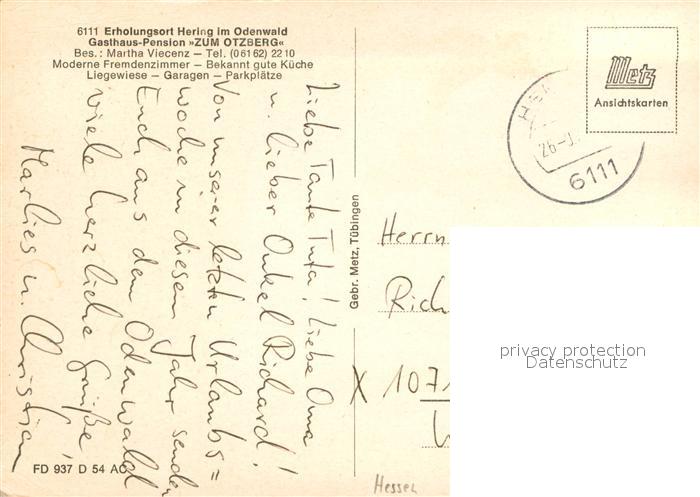 6111 Erholungsort Hering im Odenwald
Gasthaus-Pension »ZUM OTZBERG«
Bes.: Martha Viecenz – Tel. (06162) 2210
Moderne Fremdenzimmer – Bekannt gute Küche
Liegewiese – Garagen – Parkplätze
Liebe Tante Tuta! Liebe Oma
u. lieber Onkel Richard!
Von unserer letzten Urlaubs=
woche in diesem Jahr senden
Euch aus dem Odenwald
viele herzliche Grüße
Marlies u. Christian
FD 937 D 54 AC
Gebr. Metz, Tübingen
Metz
Ansichtskarten
HE
26.-
6111
Herrn
Rich
X 107
Hessen
privacy protection
Datenschutz